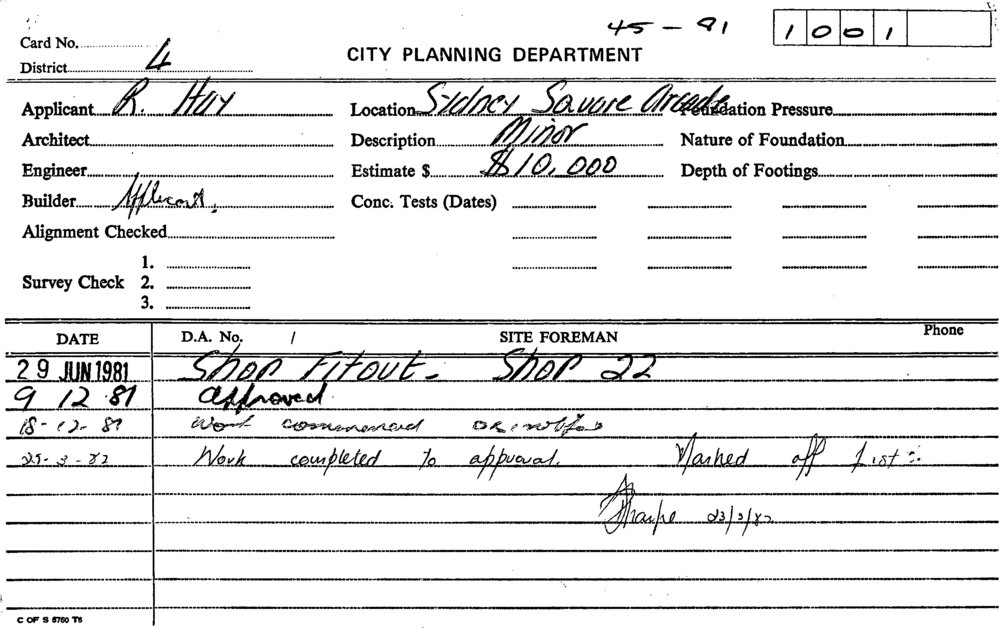 45 - 81 1001
Card No.
District 4
CITY PLANNING DEPARTMENT
Applicant R. Hay Location Sydney Square Arcade Foundation Pressure
Architect Description Minor Nature of Foundation
Engineer Estimate $ $10,000 Depth of Footings
Builder Applicant. Conc. Tests (Dates)
Alignment Checked
1.
Survey Check 2.
3.
DATE D.A. No. / SITE FOREMAN Phone
29 JUN 1981 Shop Fitout - Shop 22
9 12 81 Approved
18-12-81 Work commenced
25-3-82 Work completed to approval. Marked off list
Sharpe 23/3/82
C OF S 5750 T5